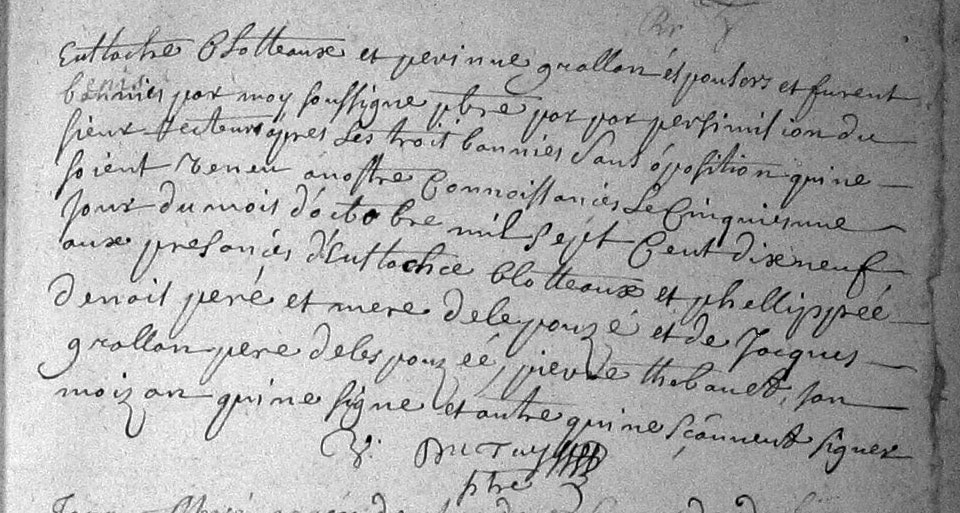 Euttache Clotteaux et perinne grallan épousers et furent
bennis
bannies par moy soussigne ptre par par persimision du
sieur Recteur apres Les troit bannies Sans óposition qui ne
soient veneu a nostre Connoissancés Le Cinquiesme
Jour du mois d'octobre mil Sept Cent dixneuf
aux presancés d'Euttachce Clotteaux et phellippreé
denoit peré et mere delepouzé et de Jacques
grallan peré delespouzeé, pierre thebauet, Jan
moizan qui ne signe et autre qui ne sçauvent signer
ptre